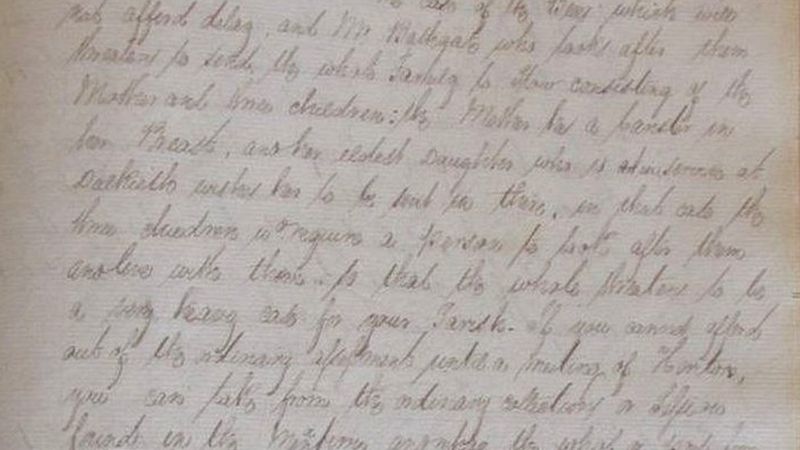 of the times which will
not afford delay, and Mr Bathgate who looks after them
threatens to send the whole Family to Stow consisting of the
Mother and three children: the Mother has a Cancer in
her Breast, and her eldest Daughter who is at service at
Dalkeith wishes her to be sent in there, in that case the
three children wd require a person to look after them
and live with them. so that the whole threatens to be
a very heavy case for your Parish. If you cannot afford
out of the ordinary assessment until a meeting of Heritors,
you can take from the ordinary collections or
funds in the Meantime